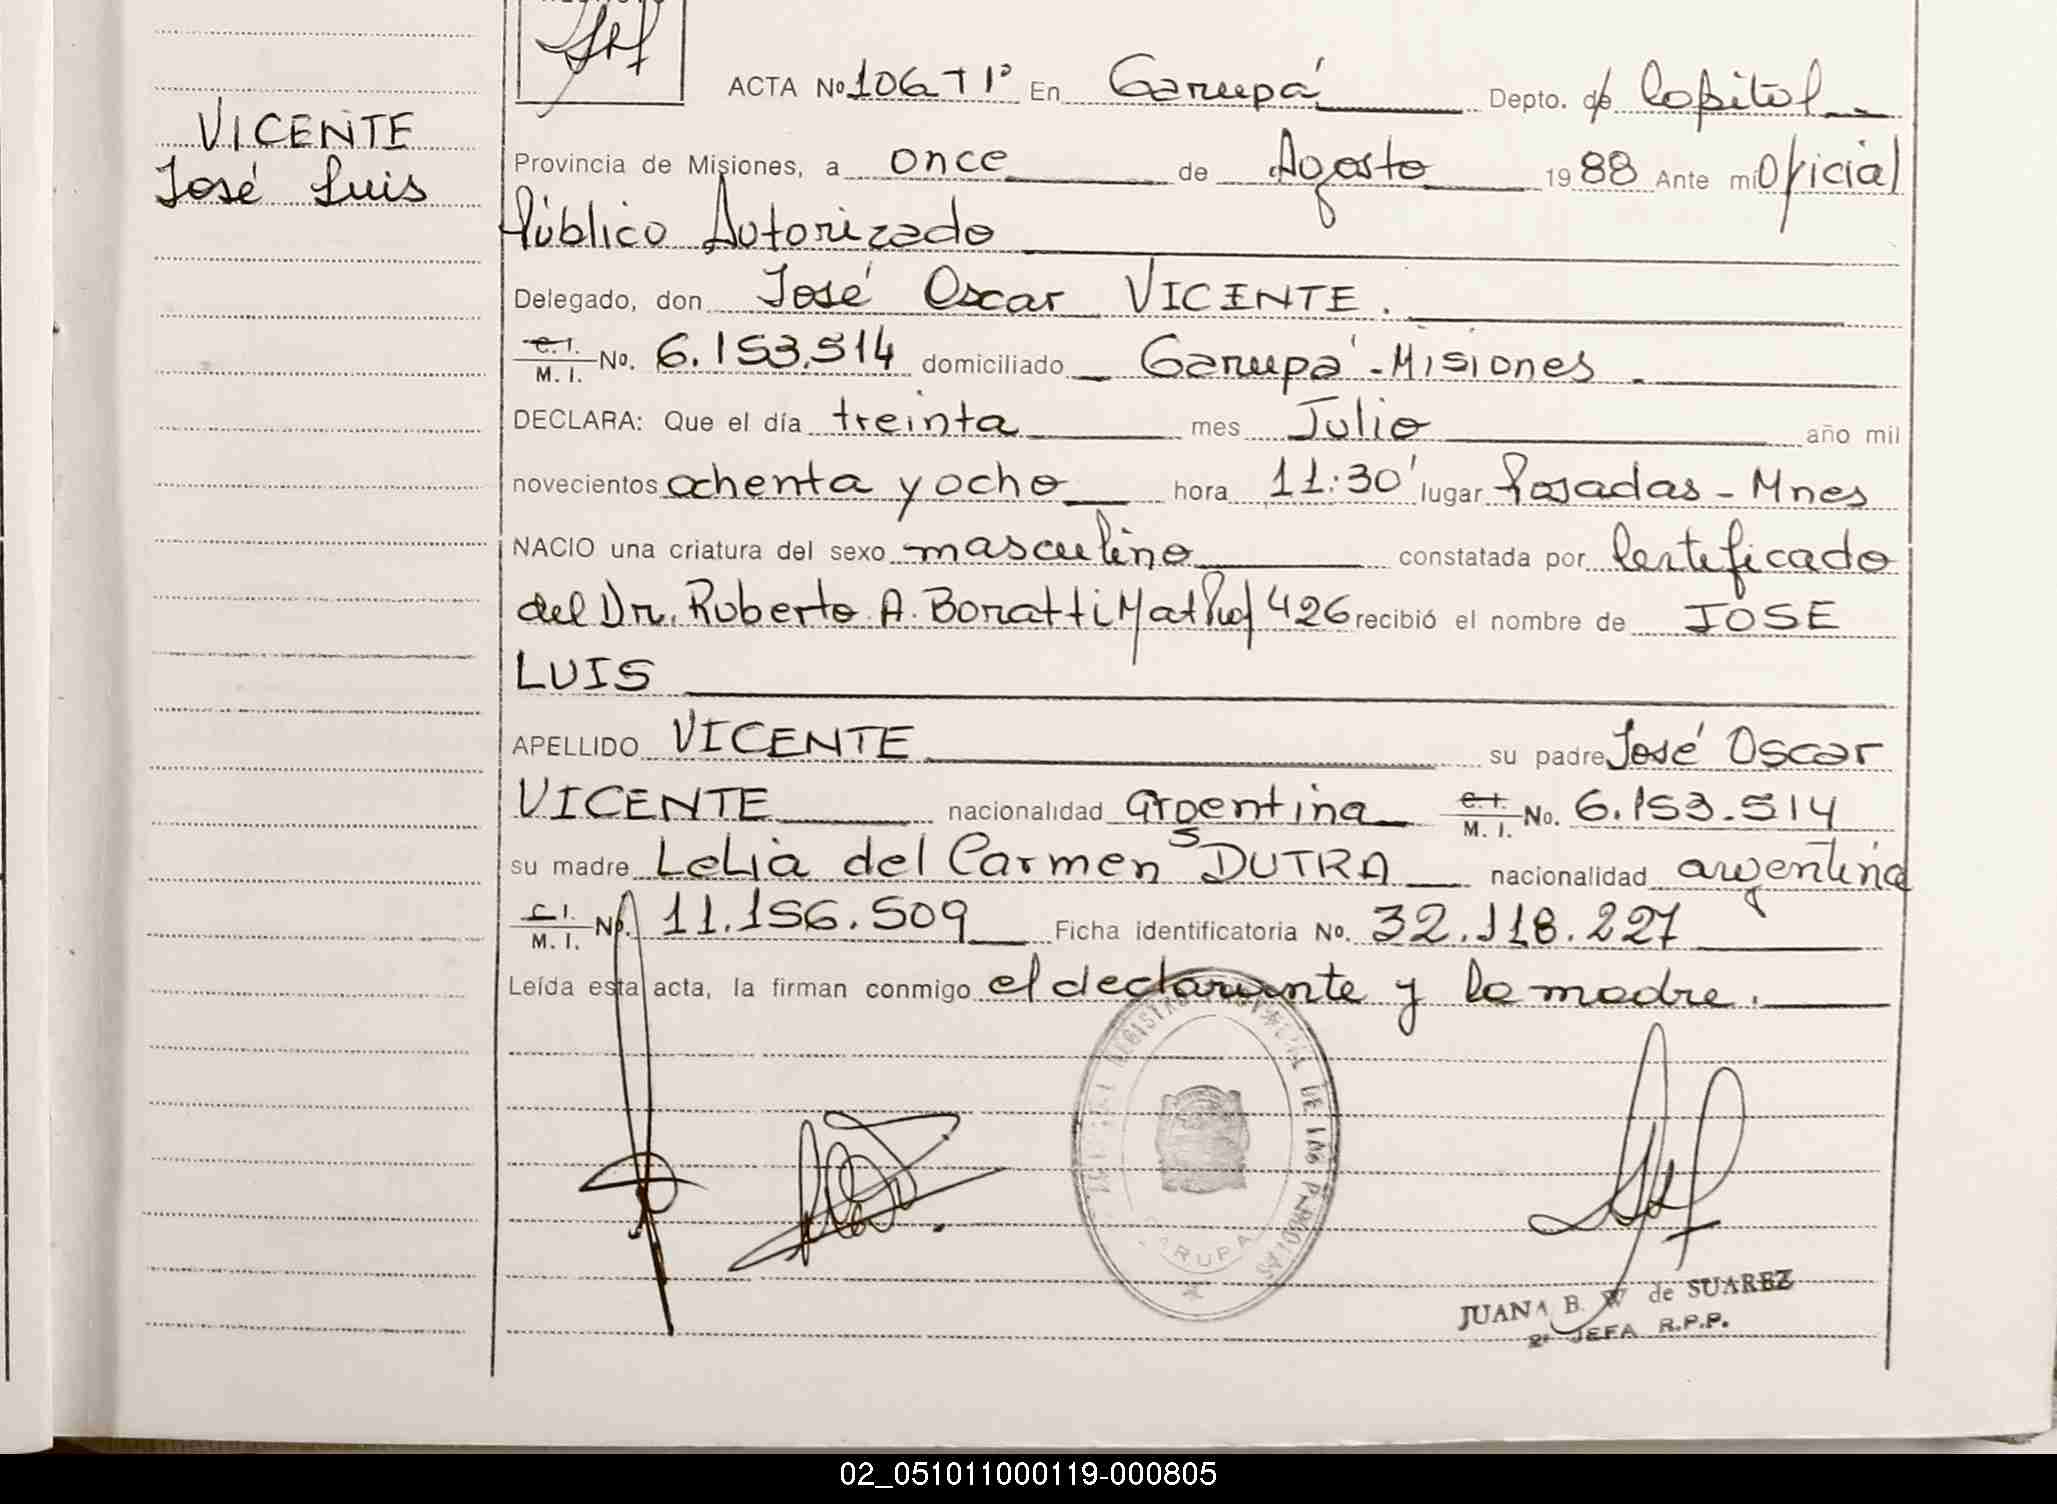 ACTA No 106 T I° En Garupá Depto. de Capital
VICENTE
José Luis
Provincia de Misiones, a once de Agosto 1988 Ante mi Oficial
Público Autorizado
Delegado, don José Oscar VICENTE.
C. I. / M. I. No. 6.153.514 domiciliado Garupá - Misiones
DECLARA: Que el día treinta mes Julio año mil
novecientos ochenta y ocho hora 11:30' lugar Posadas - Mnes
NACIO una criatura del sexo masculino constatada por Certificado
del Dr. Roberto A. Boratti Mat Prof 426 recibió el nombre de JOSE
LUIS
APELLIDO VICENTE su padre José Oscar
VICENTE nacionalidad Argentina C. I. / M. I. No. 6.153.514
su madre LeLia del Carmen DUTRA nacionalidad argentina
C. I. / M. I. No. 11.156.509 Ficha identificatoria No. 32.118.227
Leída esta acta, la firman conmigo el declarante y la madre.
REGISTRO PROVINCIAL DE LAS PERSONAS
GARUPA
JUANA B. W de SUAREZ
2° JEFA R.P.P.
02_051011000119-000805